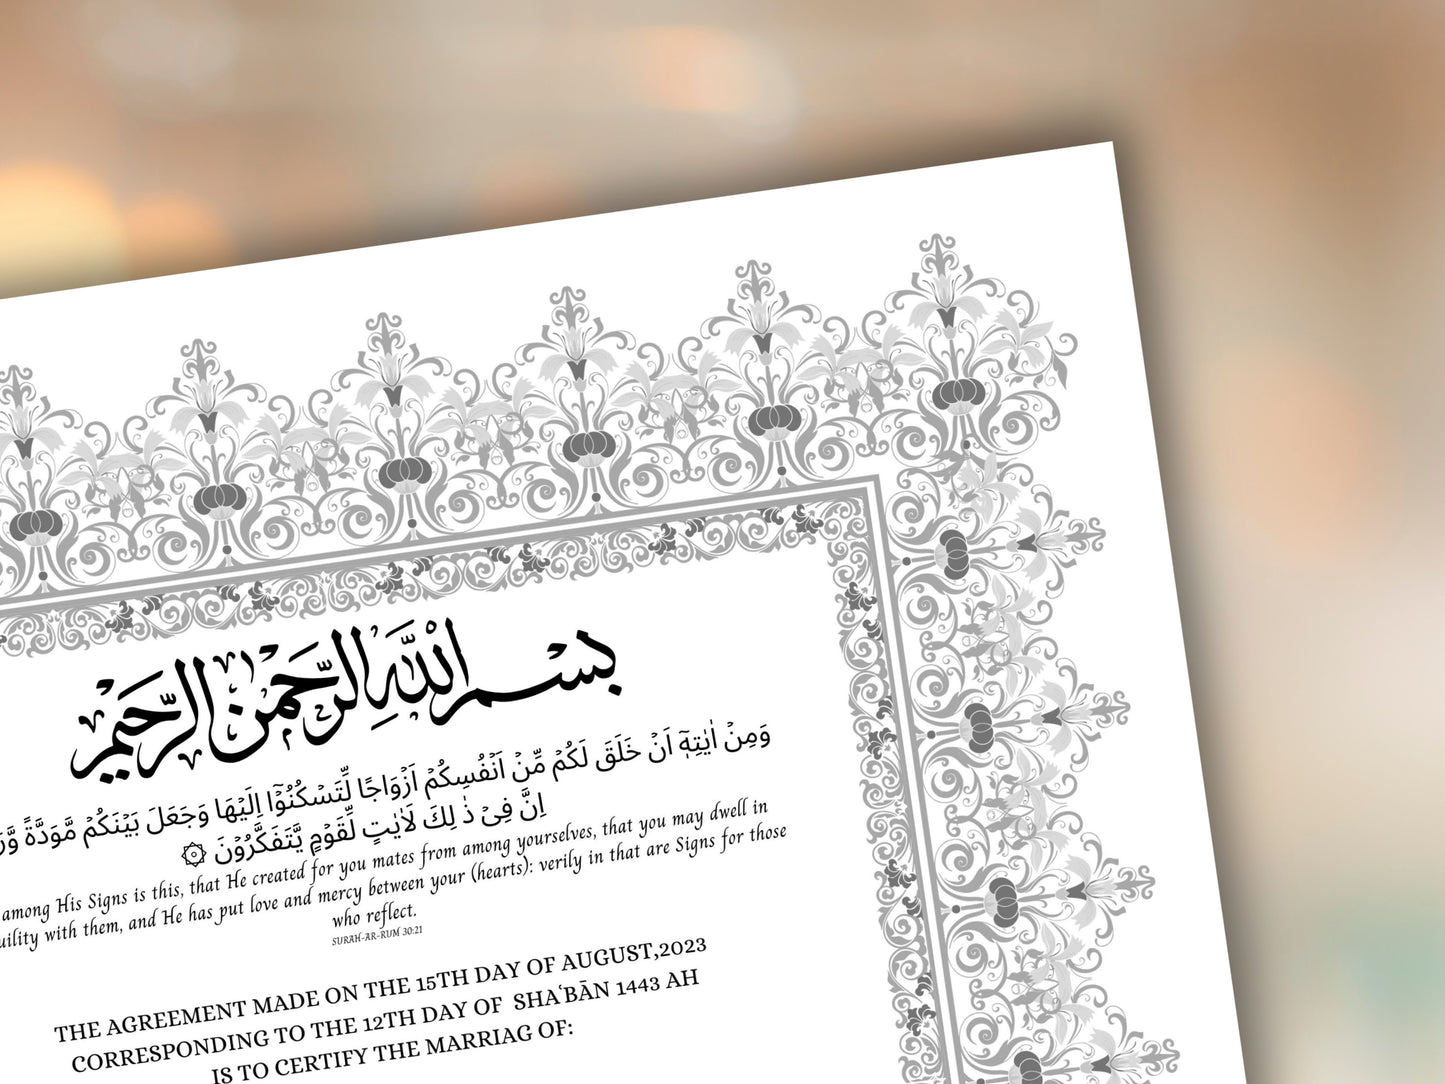 بِسْمِ اللهِ الرَّحْمٰنِ الرَّحِيْمِ
وَمِنْ اٰيٰتِهٖٓ اَنْ خَلَقَ لَكُمْ مِّنْ اَنْفُسِكُمْ اَزْوَاجًا لِّتَسْكُنُوْٓا اِلَيْهَا وَجَعَلَ بَيْنَكُمْ مَّوَدَّةً
اِنَّ فِيْ ذٰ لِكَ لَاٰيٰتٍ لِّقَوْمٍ يَّتَفَكَّرُوْنَ ۞
among His Signs is this, that He created for you mates from among yourselves, that you may dwell in
uility with them, and He has put love and mercy between your (hearts): verily in that are Signs for those
who reflect.
SURAH-AR-RUM 30:21
THE AGREEMENT MADE ON THE 15TH DAY OF AUGUST,2023
CORRESPONDING TO THE 12TH DAY OF SHAʿBĀN 1443 AH
IS TO CERTIFY THE MARRIAG OF: